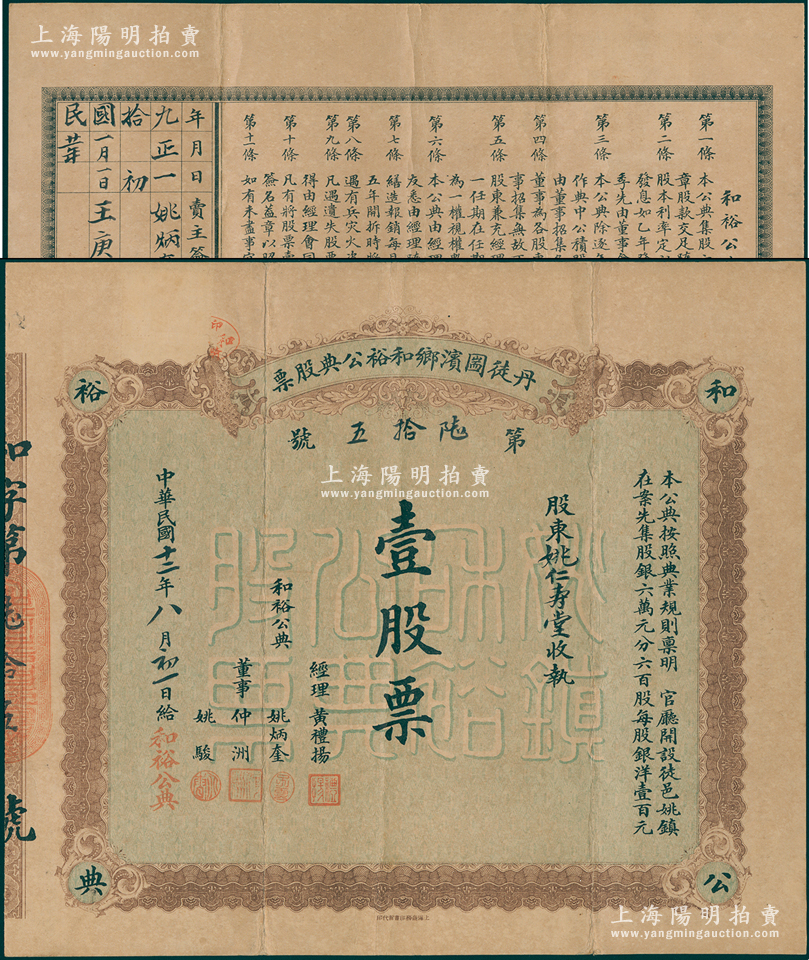 上海陽明拍賣
www.yangmingauction.com
和裕公
第一條 本公典集股
章股款交足
第二條 股本利率定
發息如乙年
季先由董事會
第三條 本公典除逐年
作典中公積
由董事招集
第四條 董事為各股東
事招集無故不
第五條 股東兼充經理
一任期在任期
為一權視權
第六條 本公典由經理
友悉由經理
第七條 繕造報銷每
五年開拆時將
第八條 遇有兵灾火盜
第九條 凡遇遺失股票
得由經理會同
第十條 凡有將股票賣
簽名蓋章以
第十一條 如有未盡事宜
年月日賣主簽
九正一姚炳
拾初
國一月一日壬庚
民
丹徒圌濱鄉和裕公典股票
和
裕
公
典
第陸拾五號
本公典按照典業規則禀明 官廳開設徒邑姚鎮
在案先集股銀六萬元分六百股每股銀洋壹百元
股東姚仁寿堂收執
上海陽明拍賣
www.yangmingauction.com
壹股票
姚鎮和裕公典股票
經理 黃禮揚
和裕公典 姚炳奎
董事 仲洲
姚駿
中華民國十二年八月初一日給
和裕公典
和字第陸拾五號
上海陽明拍賣
www.yangmingauction.com